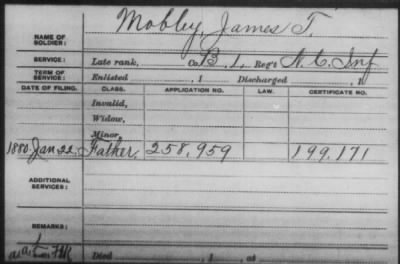 NAME OF SOLDIER: Mobley, James T.
SERVICE: Late rank, Co. B, 1, Reg't N.C. Inf
TERM OF SERVICE: Enlisted , 1 Discharged , 1
DATE OF FILING. CLASS. APPLICATION NO. LAW. CERTIFICATE NO.
Invalid,
Widow,
Minor,
1880 Jan 22 Father, 258,959 199,171
ADDITIONAL SERVICES:
REMARKS:
Died , 1 , at